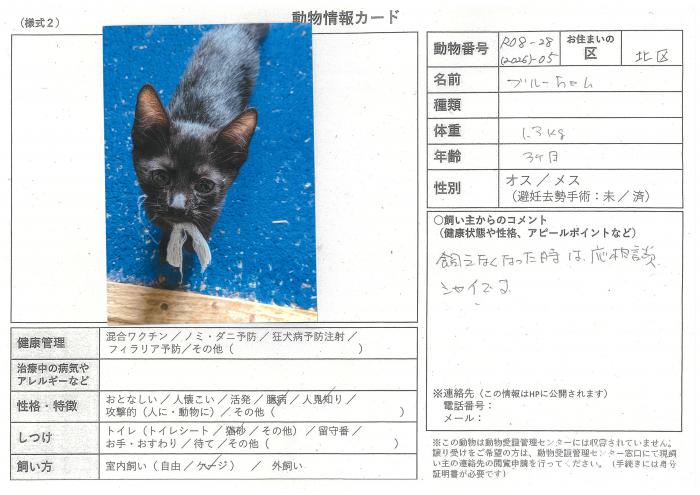 （様式２）
動物情報カード
動物番号 R08-28 (2026)-05 お住まいの区 北区
名前 ブルーちゃん
種類
体重 1.3kg
年齢 3ヶ月
性別 オス ／ メス
（避妊去勢手術：未 ／ 済）
○飼い主からのコメント
（健康状態や性格、アピールポイントなど）
飼えなくなった時は、応相談
シャイです
※連絡先（この情報はHPに公開されます）
電話番号：
メール：
※この動物は動物愛護管理センターには収容されていません。
譲り受けをご希望の方は、動物愛護管理センター窓口にて現飼
い主の連絡先の閲覧申請を行ってください。（手続きには身分
証明書が必要です）
健康管理 混合ワクチン ／ ノミ・ダニ予防 ／ 狂犬病予防注射 ／
フィラリア予防 ／ その他（ ）
治療中の病気や
アレルギーなど
性格・特徴 おとなしい ／ 人懐こい ／ 活発 ／ 臆病 ／ 人見知り ／
攻撃的（人に・動物に）／ その他（ ）
しつけ トイレ（トイレシート ／ 猫砂 ／ その他）／ 留守番 ／
お手・おすわり ／ 待て ／ その他（ ）
飼い方 室内飼い（自由 ／ ケージ） ／ 外飼い